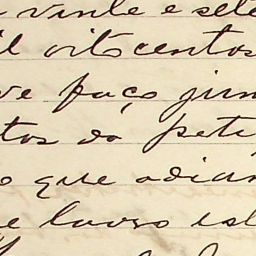 vinte e sete
il oitocentos
ve faço jun
tos da peti
o que adian
e lavro est